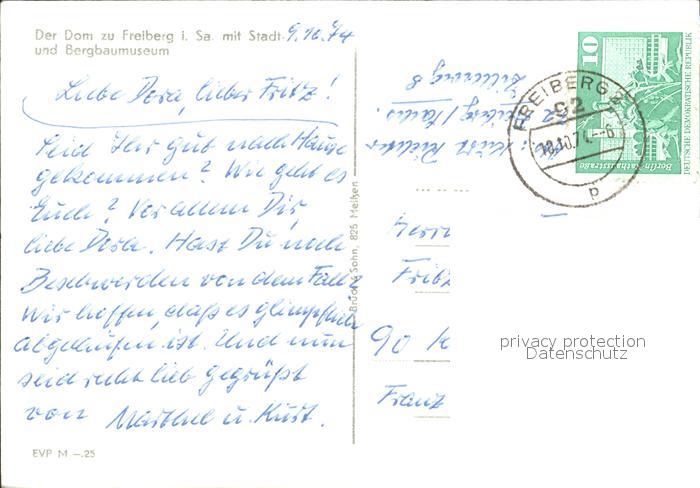 Der Dom zu Freiberg i. Sa. mit Stadt-
und Bergbaumuseum
9.10.74
Liebe Dora, lieber Fritz!
Seid Ihr gut nach Hause
gekommen? Wie geht es
Euch? Vor allem Dir,
liebe Dora. Hast Du noch
Beschwerden von dem Fall?
Wir hoffen, daß es glimpflich
abgelaufen ist. Und nun
seid recht lieb gegrüßt
von Marthel u. Kurt.
EVP M –.25
Brück & Sohn, 825 Meißen
Kurt Richter
92 Freiberg / Sachs.
8
10
DEUTSCHE DEMOKRATISCHE REPUBLIK
Berlin Rathausstraße
FREIBERG 2
92
10.10.74.–6
p
Herrn
Fritz
90 K
Franz
privacy protection
Datenschutz